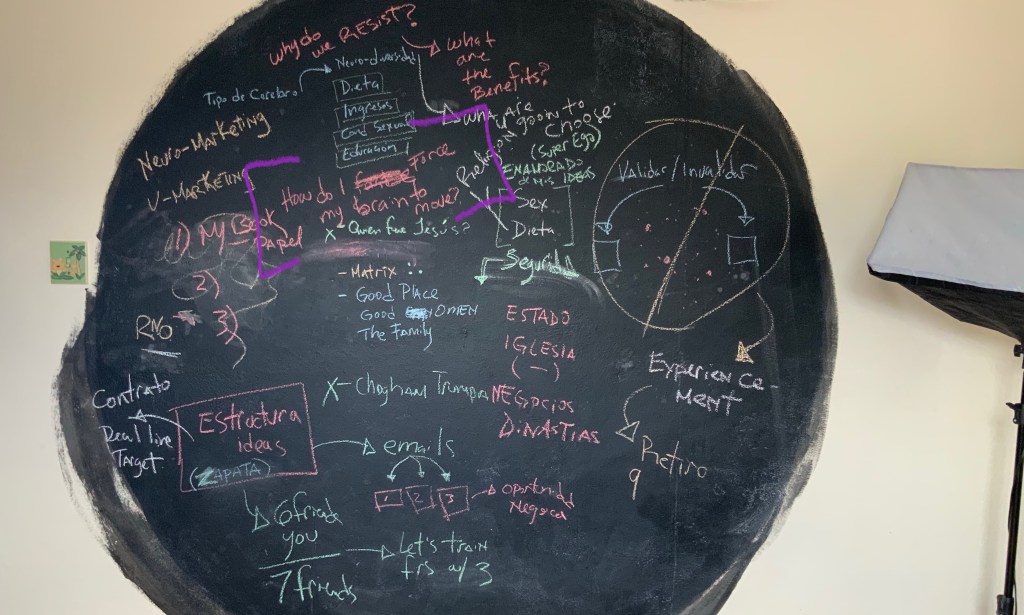 why do
we RESIST?
what
are
the
Benefits?
Neuro-diversidad
Tipo de Cerebro
Dieta
Ingresos
Cond Sexual
Educacion
what are
u goin to
choose
(Super Ego)
Religion
ENAMORADO
de mis IDEAS
Sex
Dieta
Seguridad
Neuro-Marketing
V-Marketing
How do I Force
my brain to
move?
1) My Book
Papel
2)
3)
RNO
X- Quien fue Jesús?
- Matrix
- Good Place
Good OMEN
The Family
ESTADO
IGLESIA
(-)
NEGOCIOS
DINASTIAS
Validar/Invalidar
Experience-
MENT
Retiro
9
Contrato
Real live
Target
Estructura
ideas
(ZAPATA)
emails
1 2 3
Oportunidad
Negocio
6 friends
you
7 friends
Let's train
frs w/ 3